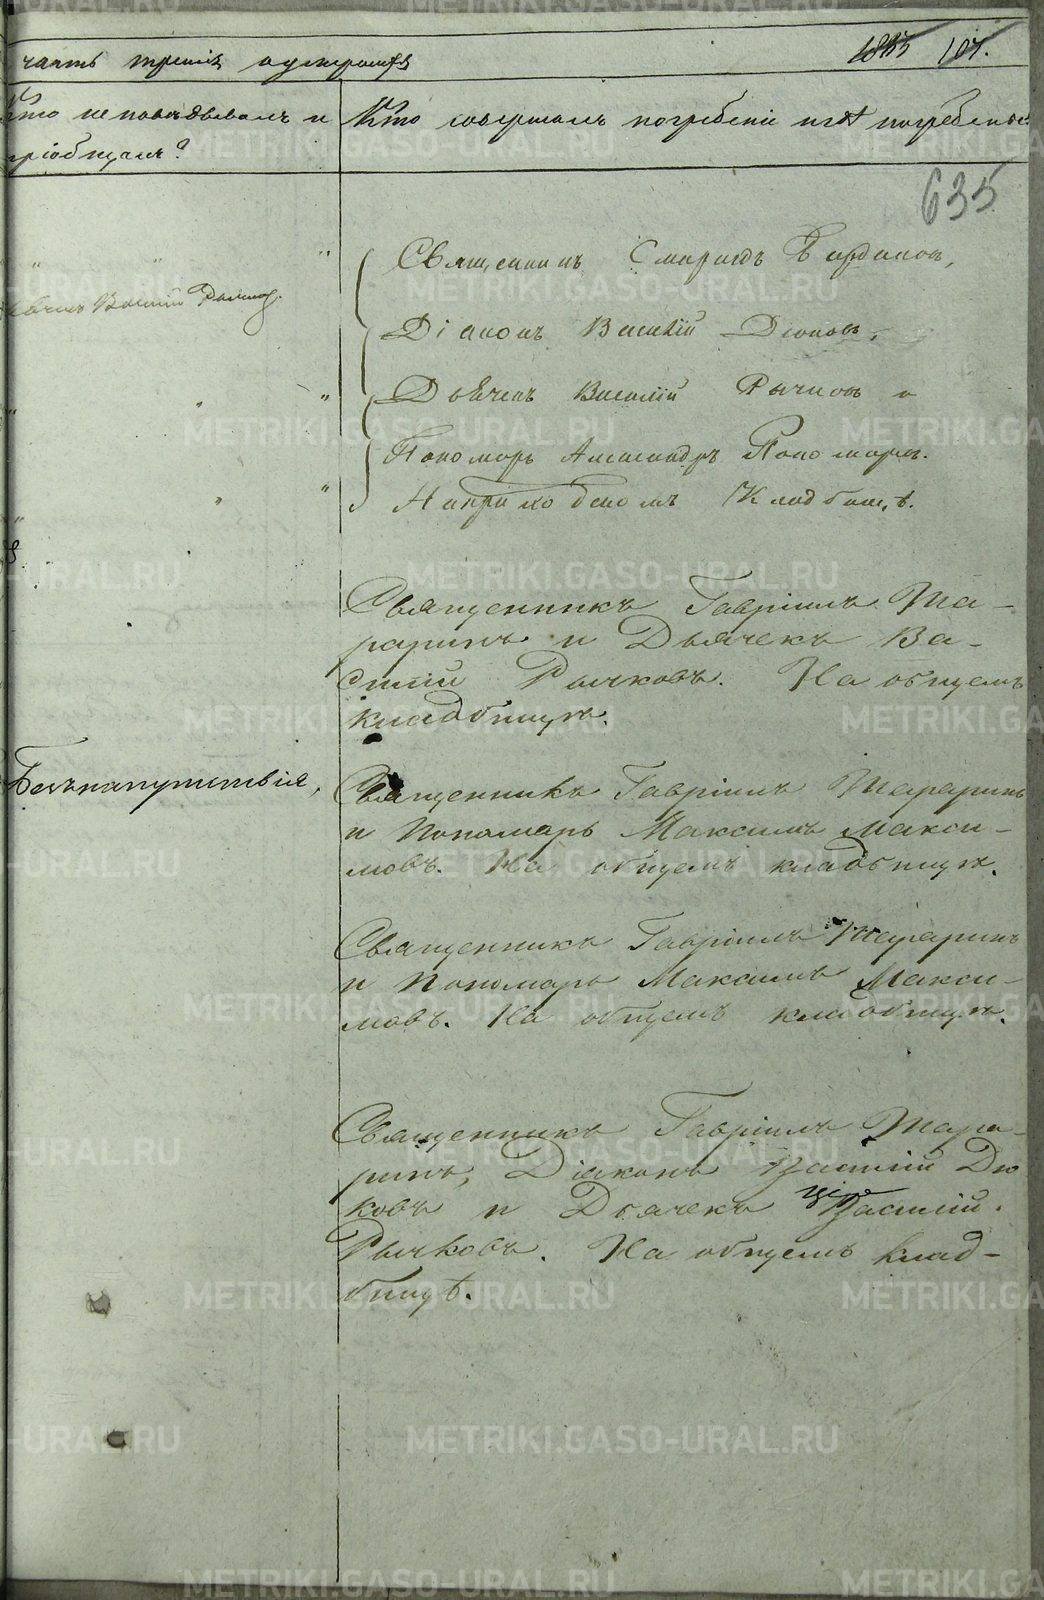 часть третія о умершихъ 107.
Кто исповѣдывалъ и
пріобщалъ?
Кто совершалъ погребеніе и гдѣ погребены?
635
Священникъ
Діаконъ Василій Дюковъ,
Дьячекъ Василій Рычковъ и
Пономарь Александръ Пономаревъ.
На приходскомъ Кладбищѣ.
Священникъ Гавріилъ Ша-
раринъ и Дьячекъ Ва-
силій Рычковъ. На общемъ
кладбищѣ.
Безъ напутствія,
Священникъ Гавріилъ Шараринъ
и Пономарь Максимъ Макси-
мовъ. На общемъ кладбищѣ.
Священникъ Гавріилъ Шараринъ
и Пономарь Максимъ Макси-
мовъ. На общемъ кладбищѣ.
Священникъ Гавріилъ Шара-
ринъ, Діаконъ Василій Дю
ковъ и Дьячекъ Василій
Рычковъ. На общемъ клад-
бищѣ.
METRIKI.GASO-URAL.RU